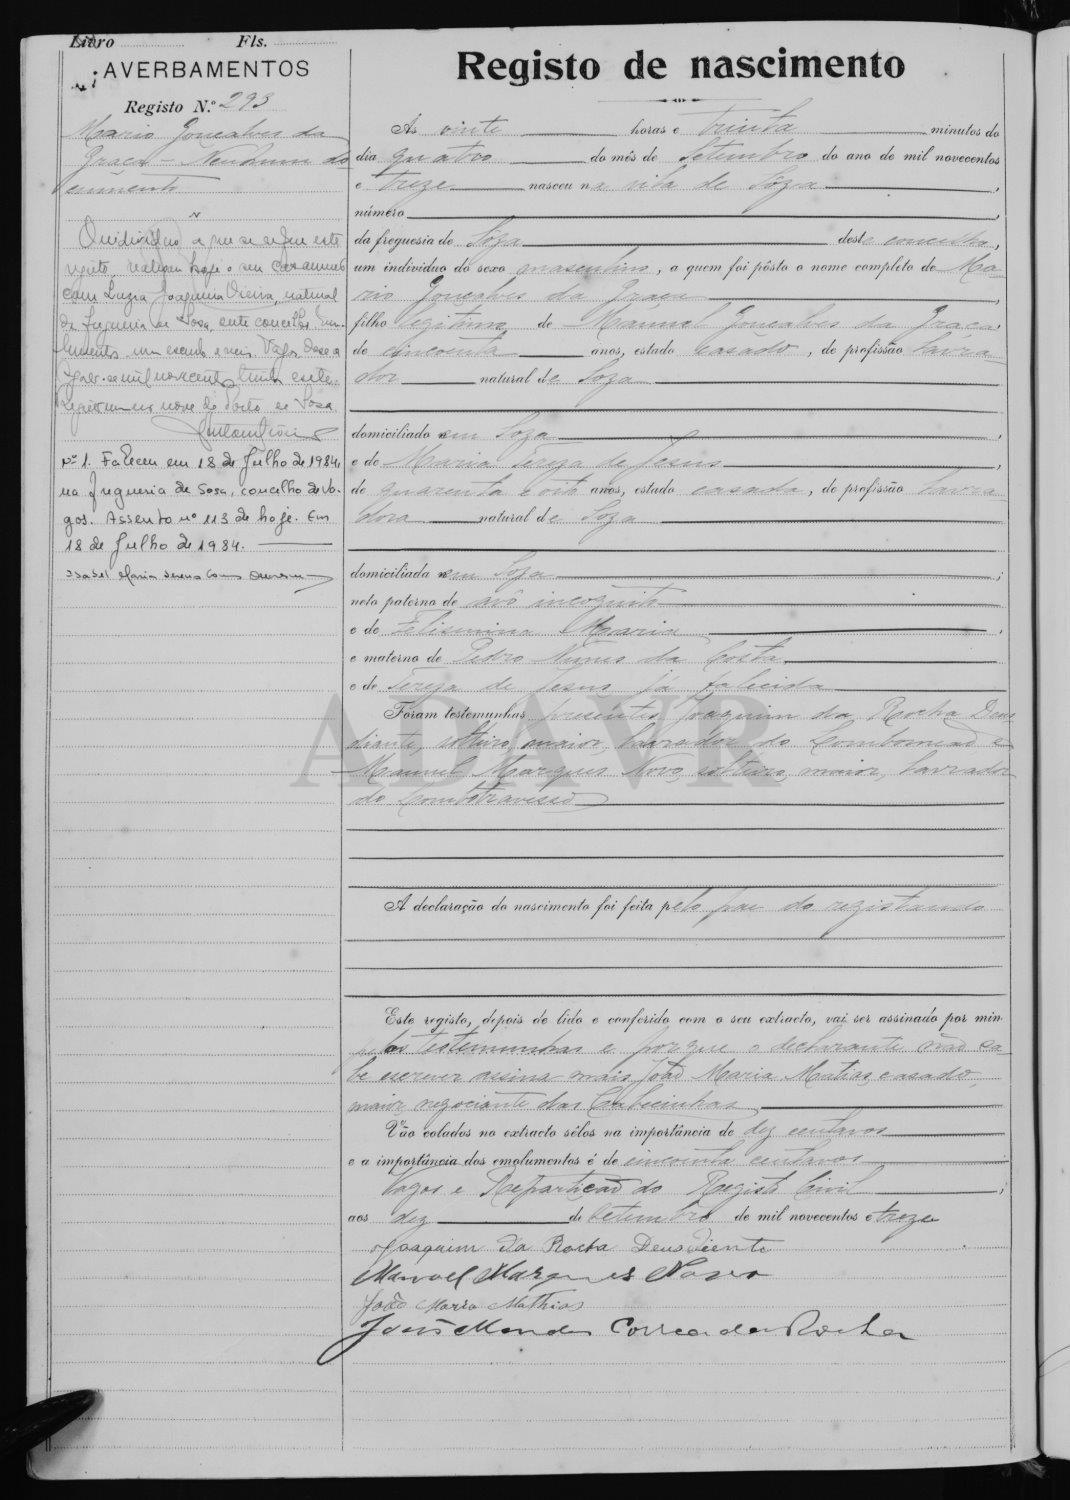 Livro Fls.
AVERBAMENTOS
Registo N.º 293
Mario Gonçalves da
Graça – Nenhum do
cumento
O individuo a que se refere este
registo, realizou hoje o seu casamento
com Luzia Joaquina Vieira, natural
da freguesia de Sosa, este concelho.
um escudo e Vagos, doze
de mil novecentos trinta e sete.
nove do Posto de Sosa.
Nº 1. Faleceu em 18 de Julho de 1984,
na freguesia de Sosa, concelho de Va-
gos. Assento nº 113 de hoje. Em
18 de Julho de 1984.
Isabel Maria
Registo de nascimento
Ás vinte horas e trinta minutos do
dia quatro do mês de Setembro do ano de mil novecentos
e treze nasceu na vila de Sôza,
número
da freguesia de Sôza deste concelho,
um individuo do sexo masculino, a quem foi pôsto o nome completo de Ma-
rio Gonçalves da Graça
filho legitimo de Manuel Gonçalves da Graça,
de cincoenta anos, estado casado, de profissão lavra
dor natural de Soza
domiciliado em Soza,
e de Maria Tereza de Jesus,
de quarenta e oito anos, estado casada, de profissão lavra
dora natural de Soza
domiciliada em Soza;
neto paterno de avô incognito
e de Felismina Maria,
e materno de Pedro Nunes da Costa
e de Tereza de Jesus já falecida
Foram testemunhas presentes, Joaquim da Rocha Deus
diante, solteiro, maior, lavrador do e
Manuel Marques Novo, solteiro, maior, lavrador
do
ADAVR
A declaração do nascimento foi feita pelo pae do registando
Este registo, depois de lido e conferido com o seu extracto, vai ser assinado por mim
pelas testemunhas e porque o declarante não sa-
be escrever assina mais João Maria Matias, casado,
maior, negociante das Cabecinhas
Vão colados no extracto sêlos na importância de dez centavos
e a importância dos emolumentos é de cincoenta centavos
Vagos e Repartição do Registo Civil;
aos dez de Setembro de mil novecentos e treze
Joaquim da Rocha Deusdiente
Manoel Marques Novo
João Maria Mathias
Mendes Correa da Rocha